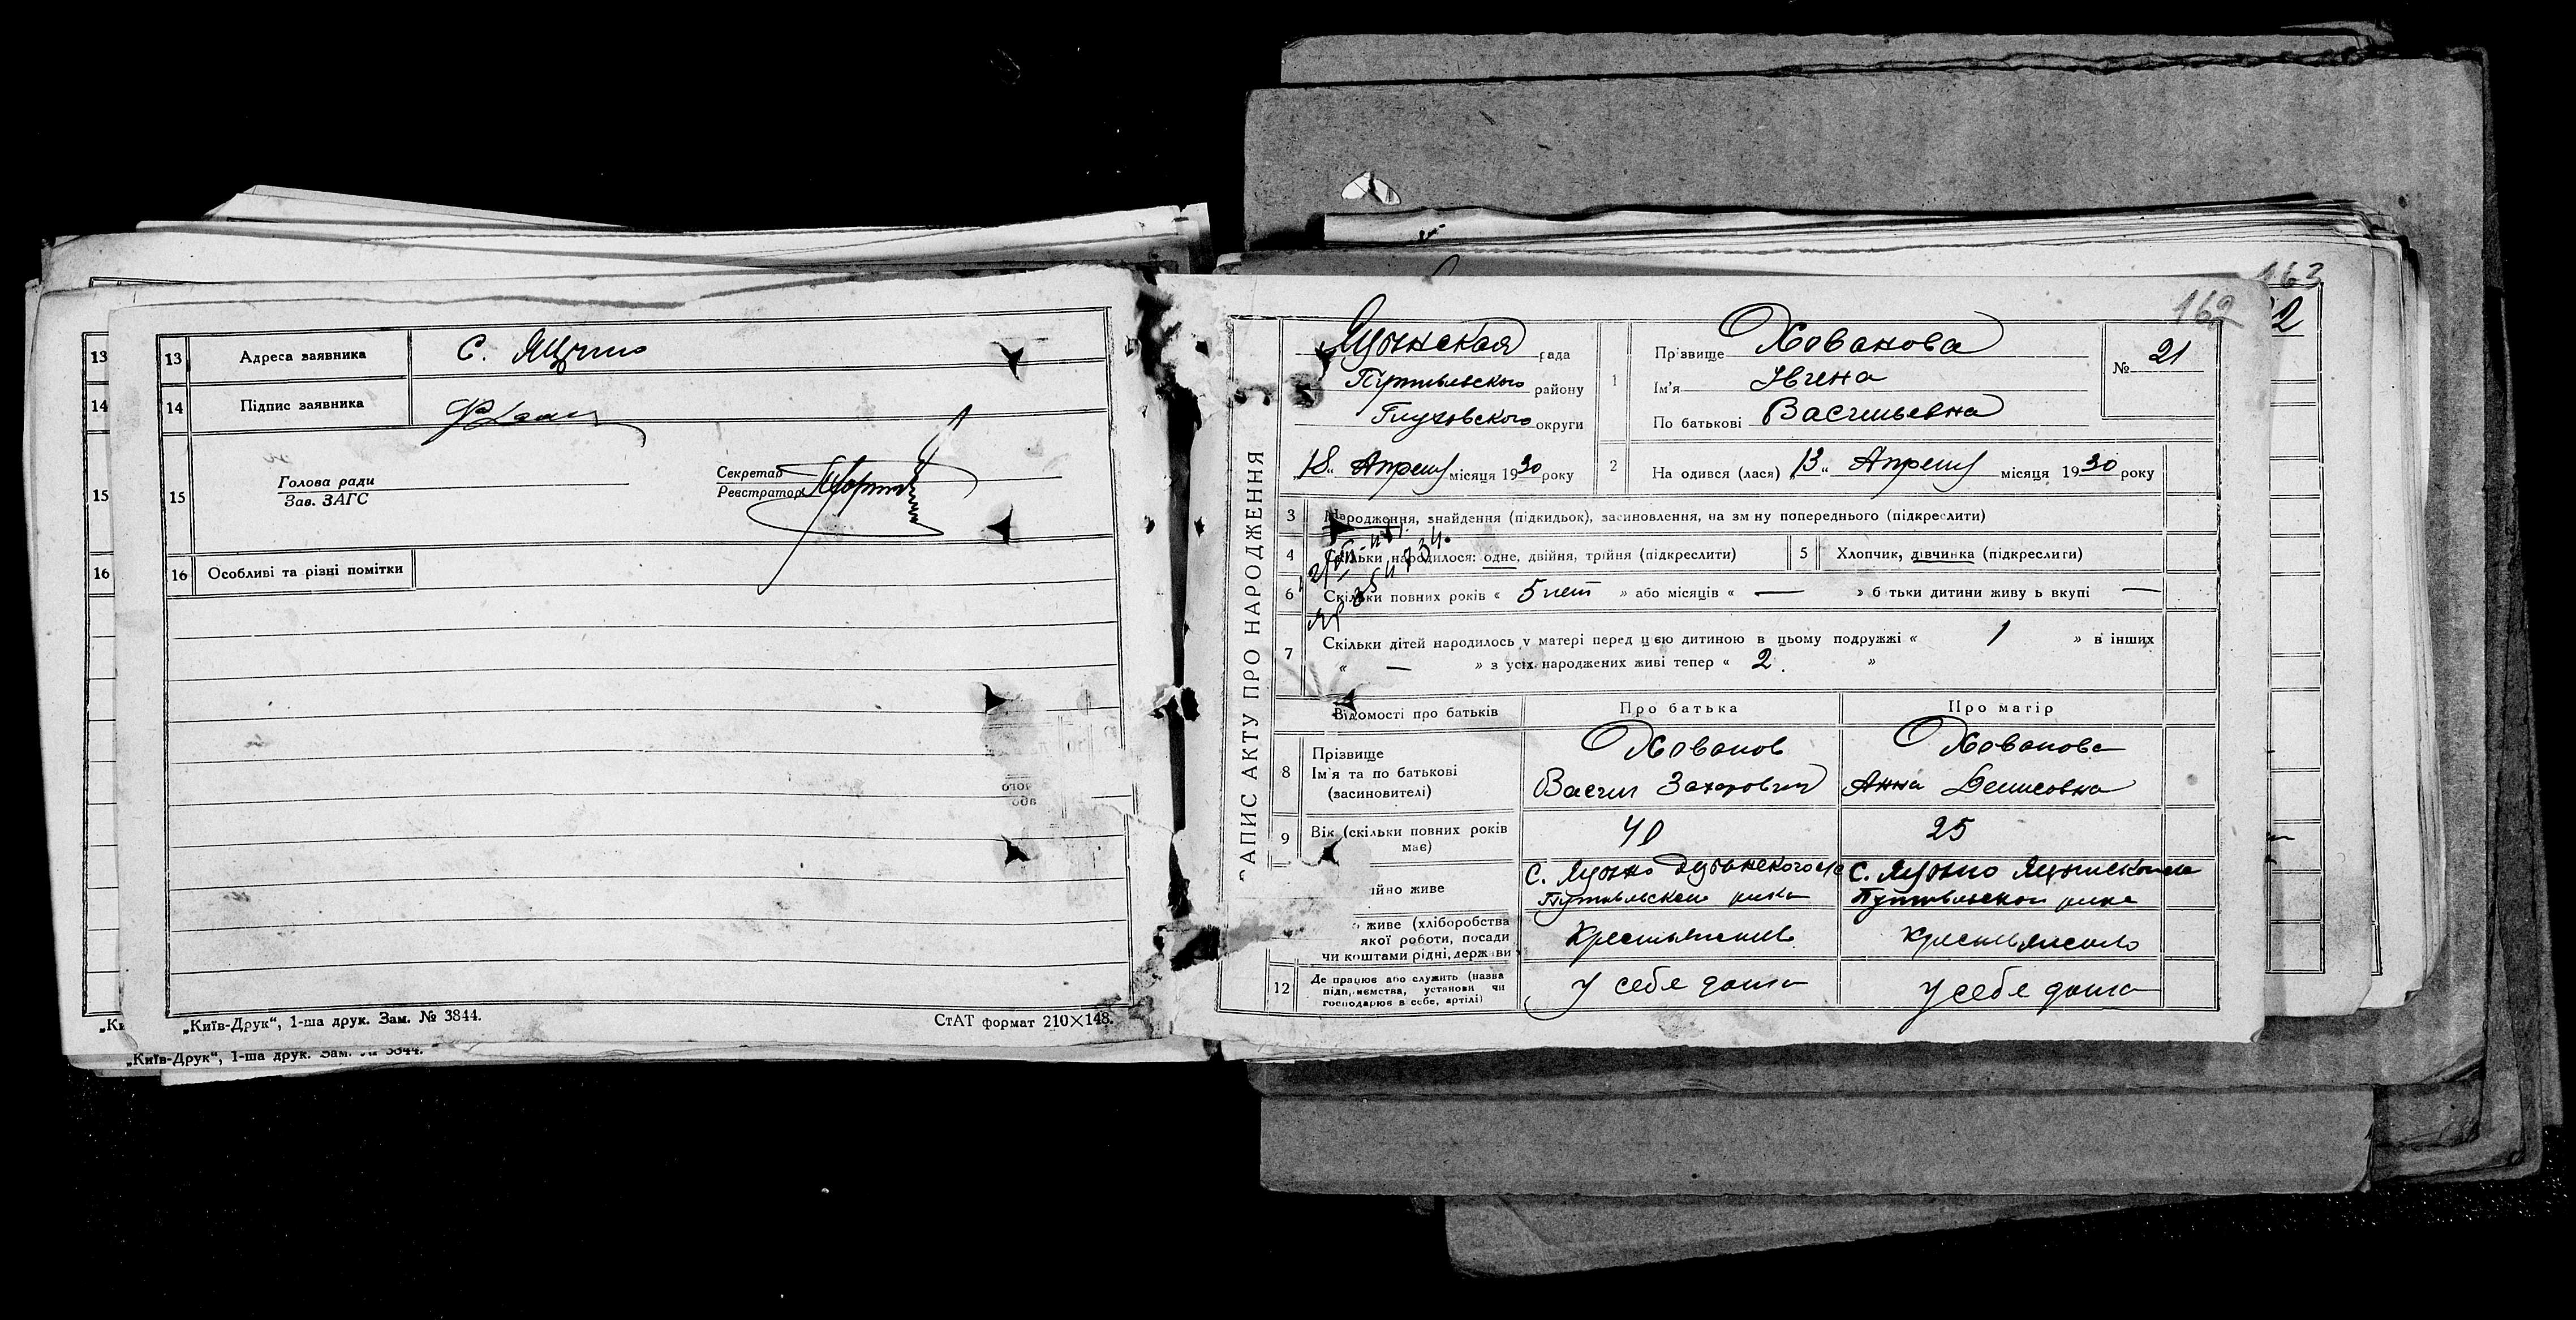 13 Адреса заявника С. Яцыно
14 Підпис заявника
15 Голова ради
Зав. ЗАГС
Секретар
Реєстратор
16 Особливі та різні помітки
„Київ-Друк“, 1-ша друк. Зам. № 3844.
СтАТ формат 210×148.
„Київ-Друк“, 1-ша друк. Зам. № 3844.
13
14
15
16
163
162
2
АПИС АКТУ ПРО НАРОДЖЕННЯ
Яцынская рада
Путивльского району
Глуховского округи
„18“ Апреля місяця 1930 року
1 Прізвище Хованова
Ім'я
По батькові Васильевна
№ 21
2 На одився (лася) „13“ Апреля місяця 1930 року
3 Народження, знайдення (підкидьок), засиновлення, на зм ну попереднього (підкреслити)
4 Скільки народилося: одне, двійня, трійня (підкреслити)
5 Хлопчик, дівчинка (підкреслити)
6 Скільки повних років « 5 лет » або місяців « — » б тьки дитини живу ь вкупі —
7 Скільки дітей народилось у матері перед цією дитиною в цьому подружжі « 1 » в інших
« — » з усіх народжених живі тепер « 2 »
Відомості про батьків Про батька Про матір
8 Прізвище
Ім'я та по батькові
(засиновителі)
Хованов
Васил Захарович
Хованова
Анна Денисовна
9 Вік (скільки повних років має) 40 25
ійно живе
С. Яцыно
Путивльского рика
С. Яцыно
Путивльского рика
живе (хліборобства
якої роботи, посади
чи коштами рідні, держ ви
Крестьянсив
Крестьянсило
12 Де працює або служить (назва
підприємства, установи чи
господарює в себе, артілі)
У себе дома
У себе дома